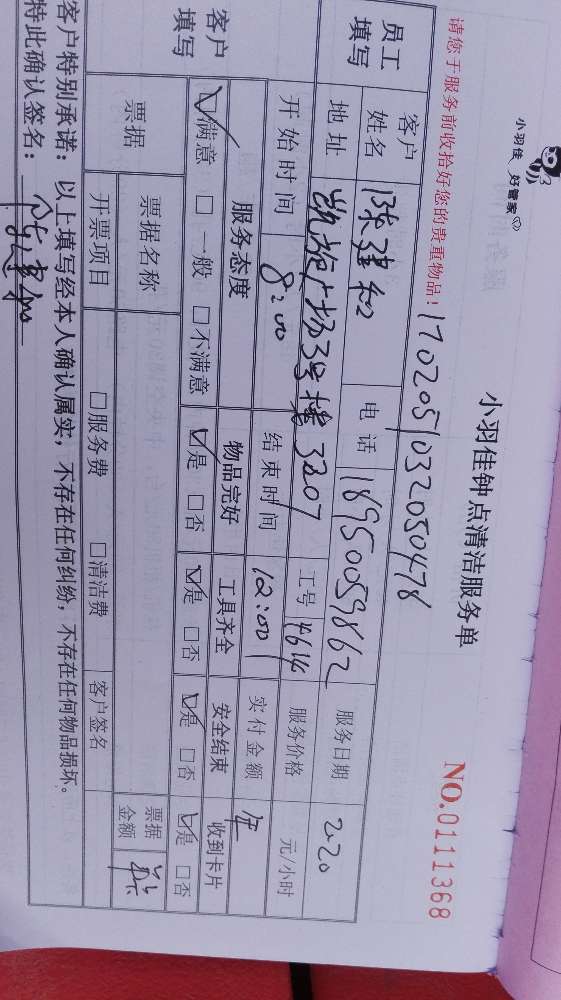 小羽佳 好管家
小羽佳钟点清洁服务单
NO.0111368
请您于服务前收拾好您的贵重物品！1702051032050478
员工填写 客户姓名 陈建和 电话 18950059862 服务日期 2.20
地址 凯旋广场3号楼3207 工号 4614 服务价格 元/小时
开始时间 8:00 结束时间 12:00 实付金额 年
客户填写 服务态度 物品完好 工具齐全 安全结束 收到卡片
☑满意 □一般 □不满意 ☑是 □否 ☑是 □否 ☑是 □否 ☑是 □否
票据 票据名称 票据金额
开票项目 □服务费 □清洁费 客户签名
客户特别承诺：以上填写经本人确认属实，不存在任何纠纷，不存在任何物品损坏。
特此确认签名：陈建和